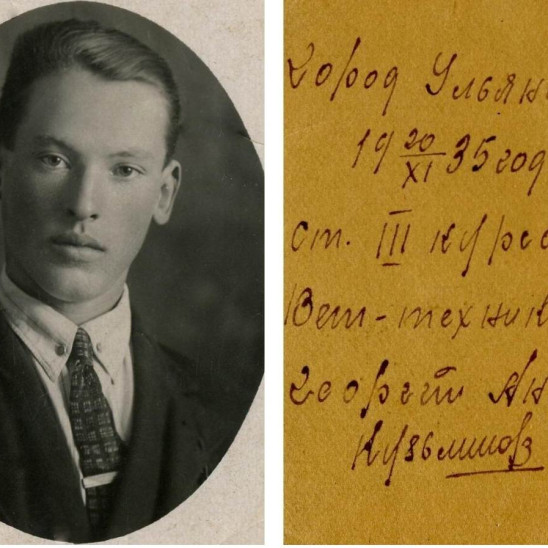 город Ульян
19 20/XI 35 год
ст. III курс
Вет-техник
Георгий Ан
Кузьминов